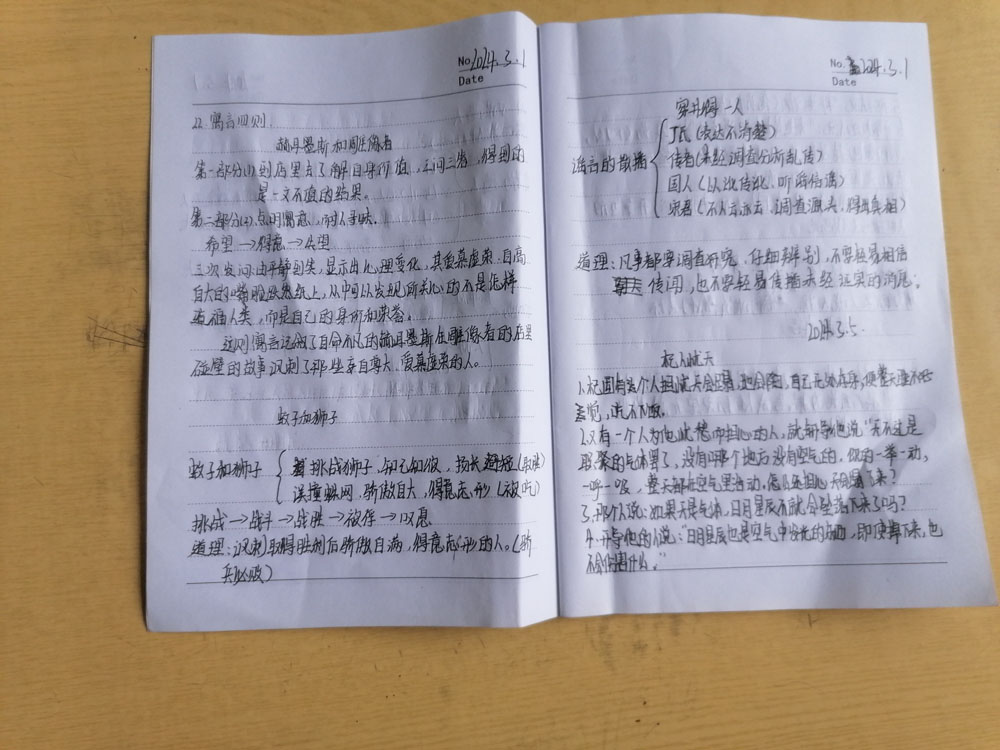 No 2024.3.1
Date
22.寓言四则
赫耳墨斯和雕像者
第一部分(1)到店里去了解自身价值,三问三答,得到的
是一文不值的结果。
第二部分(2)点明寓意,耐人寻味。
希望→得意→失望
三次发问:由平静到笑,显示出心理变化,其爱慕虚荣、自高
自大的嘴脸跃然纸上,从中可以发现所关心的不是怎样
造福人类,而是自己的身份和荣誉。
这则寓言说做了自命不凡的赫耳墨斯在雕像者的店里
碰壁的故事讽刺了那些妄自尊大、爱慕虚荣的人。
蚊子和狮子
蚊子和狮子
挑战狮子,知己知彼,扬长避短(取胜)
误撞蛛网,骄傲自大,得意忘形(被吃)
挑战→战斗→战胜→被俘→叹息
道理:讽刺取得胜利后骄傲自满,得意忘形的人。(骄
兵必败)
No. 2024.3.1
Date
穿井得一人
谣言的散播
丁氏(表达不清楚)
传者(未经调查分析乱传)
国人(以讹传讹、听信谣)
宋君(不人云亦云、调查源头、得出真相)
道理:凡事都要调查研究,仔细辨别,不要轻易相信
传闻,也不要轻易传播未经证实的消息。
2024.3.5.
杞人忧天
1.杞国有这个人担忧天会塌、地会陷,自己无处存身,便整天睡不好
觉,吃不下饭。
2.又有一个人为他此愁而担心的人,就开导他说"天不过是
聚的气体罢了,没有哪个地方没有空气的,你的一举一动,
一呼一吸,整天都在空气里活动,怎么还担心天会塌下来?
3.那个人说:如果天是气体,日月星辰不就会坠落下来了吗?
4.开导他的人说:"日月星辰也是空气中发光的东西,即使掉下来,也
不会伤害什么。"